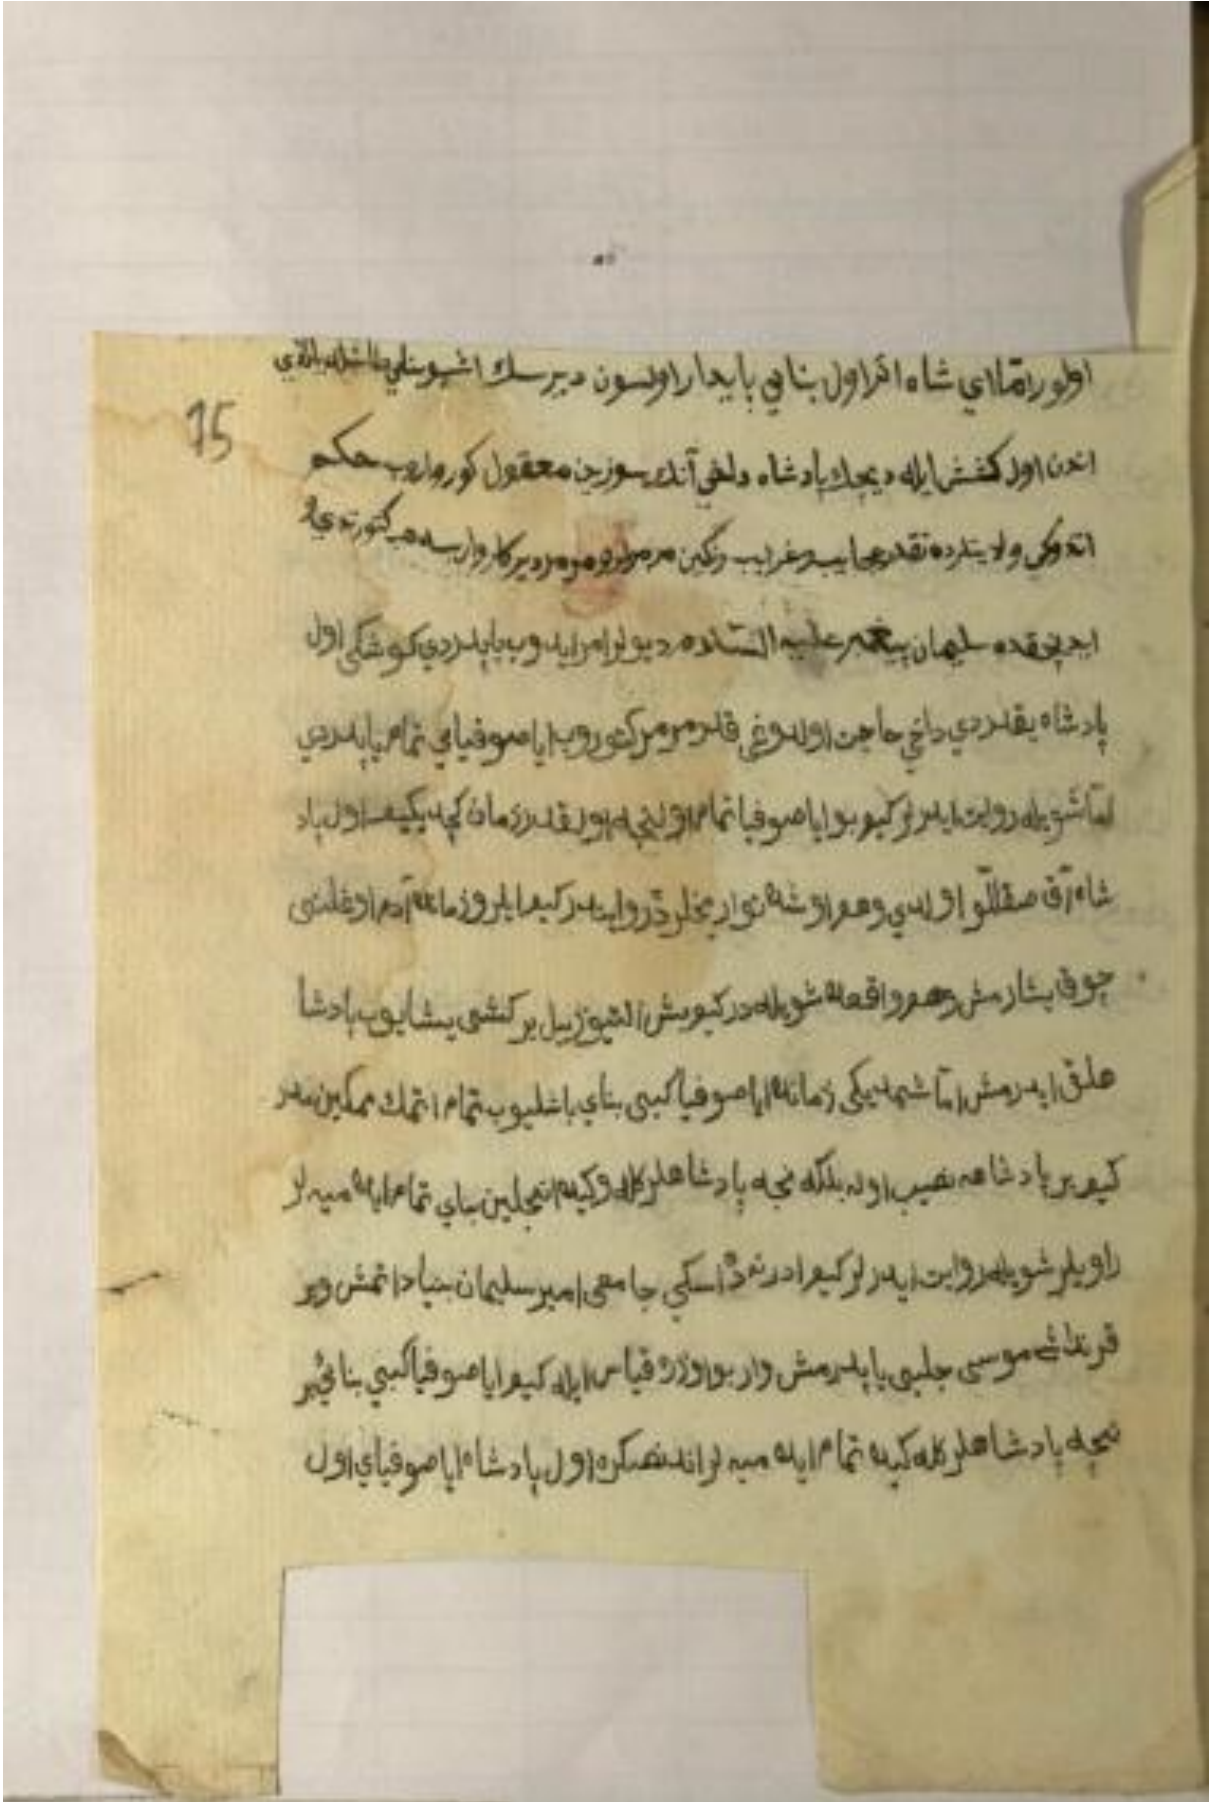 15
اولور امّا اي شاه اكر اول بنايي پايدار اولسون ديرسك اشبو
اندن اول كفش ايله ديجك پادشاه دلخي آنك سوزين معقول كوروب حكم
اتدي كي ولايتلرده نقدر عجايب و غرايب رنكين مرمرلر و مرمر ديركلر وارسه هپ كتورتدي
سليمان پيغمبر عليه السّلام ديولر امر ايدوب ياپدردي كوشكي اول
پادشاه يقدردي داخي حاجت اولدوغي قدر مرمر كتوروب اياصوفيايي تمام ياپدردي
امّا شويله روايت ايدرلر كيم بو اياصوفيا تمام اولنجه اولقدر زمان كچديكيم اول پاد
شاه آق صقاللّو اولدي وهم اوشه تواريخلرده روايتدر كيم ايلرو زمانده آدم اوغلنى
چوق يشارمش وهم واقعه شويله در كيم بش التيوز ييل بر كشى يشايوب پادشا
هلق ايدرمش امّا شمديكي زمانه اياصوفيا كبى بناي باشليوب تمام اتمك ممكين مدر
كيم بر پادشاهه نصيب اوله بلكه نجه پادشاهلر كله و كيده انجلين بناي تمام ايده ميه لر
راويلر شويله روايت ايدرلر كيم ادرنه ده اسكي جامعى امير سليمان بنياد اتمش وبر
قرنداشي موسى جلبى ياپدرمش وار بو اوزره قياس ايله كيم اياصوفيا كبي بنائي بر
نيجه پادشاهلر كله كيده تمام ايده ميه لر اندنصكره اول پادشاه اياصوفياي اول